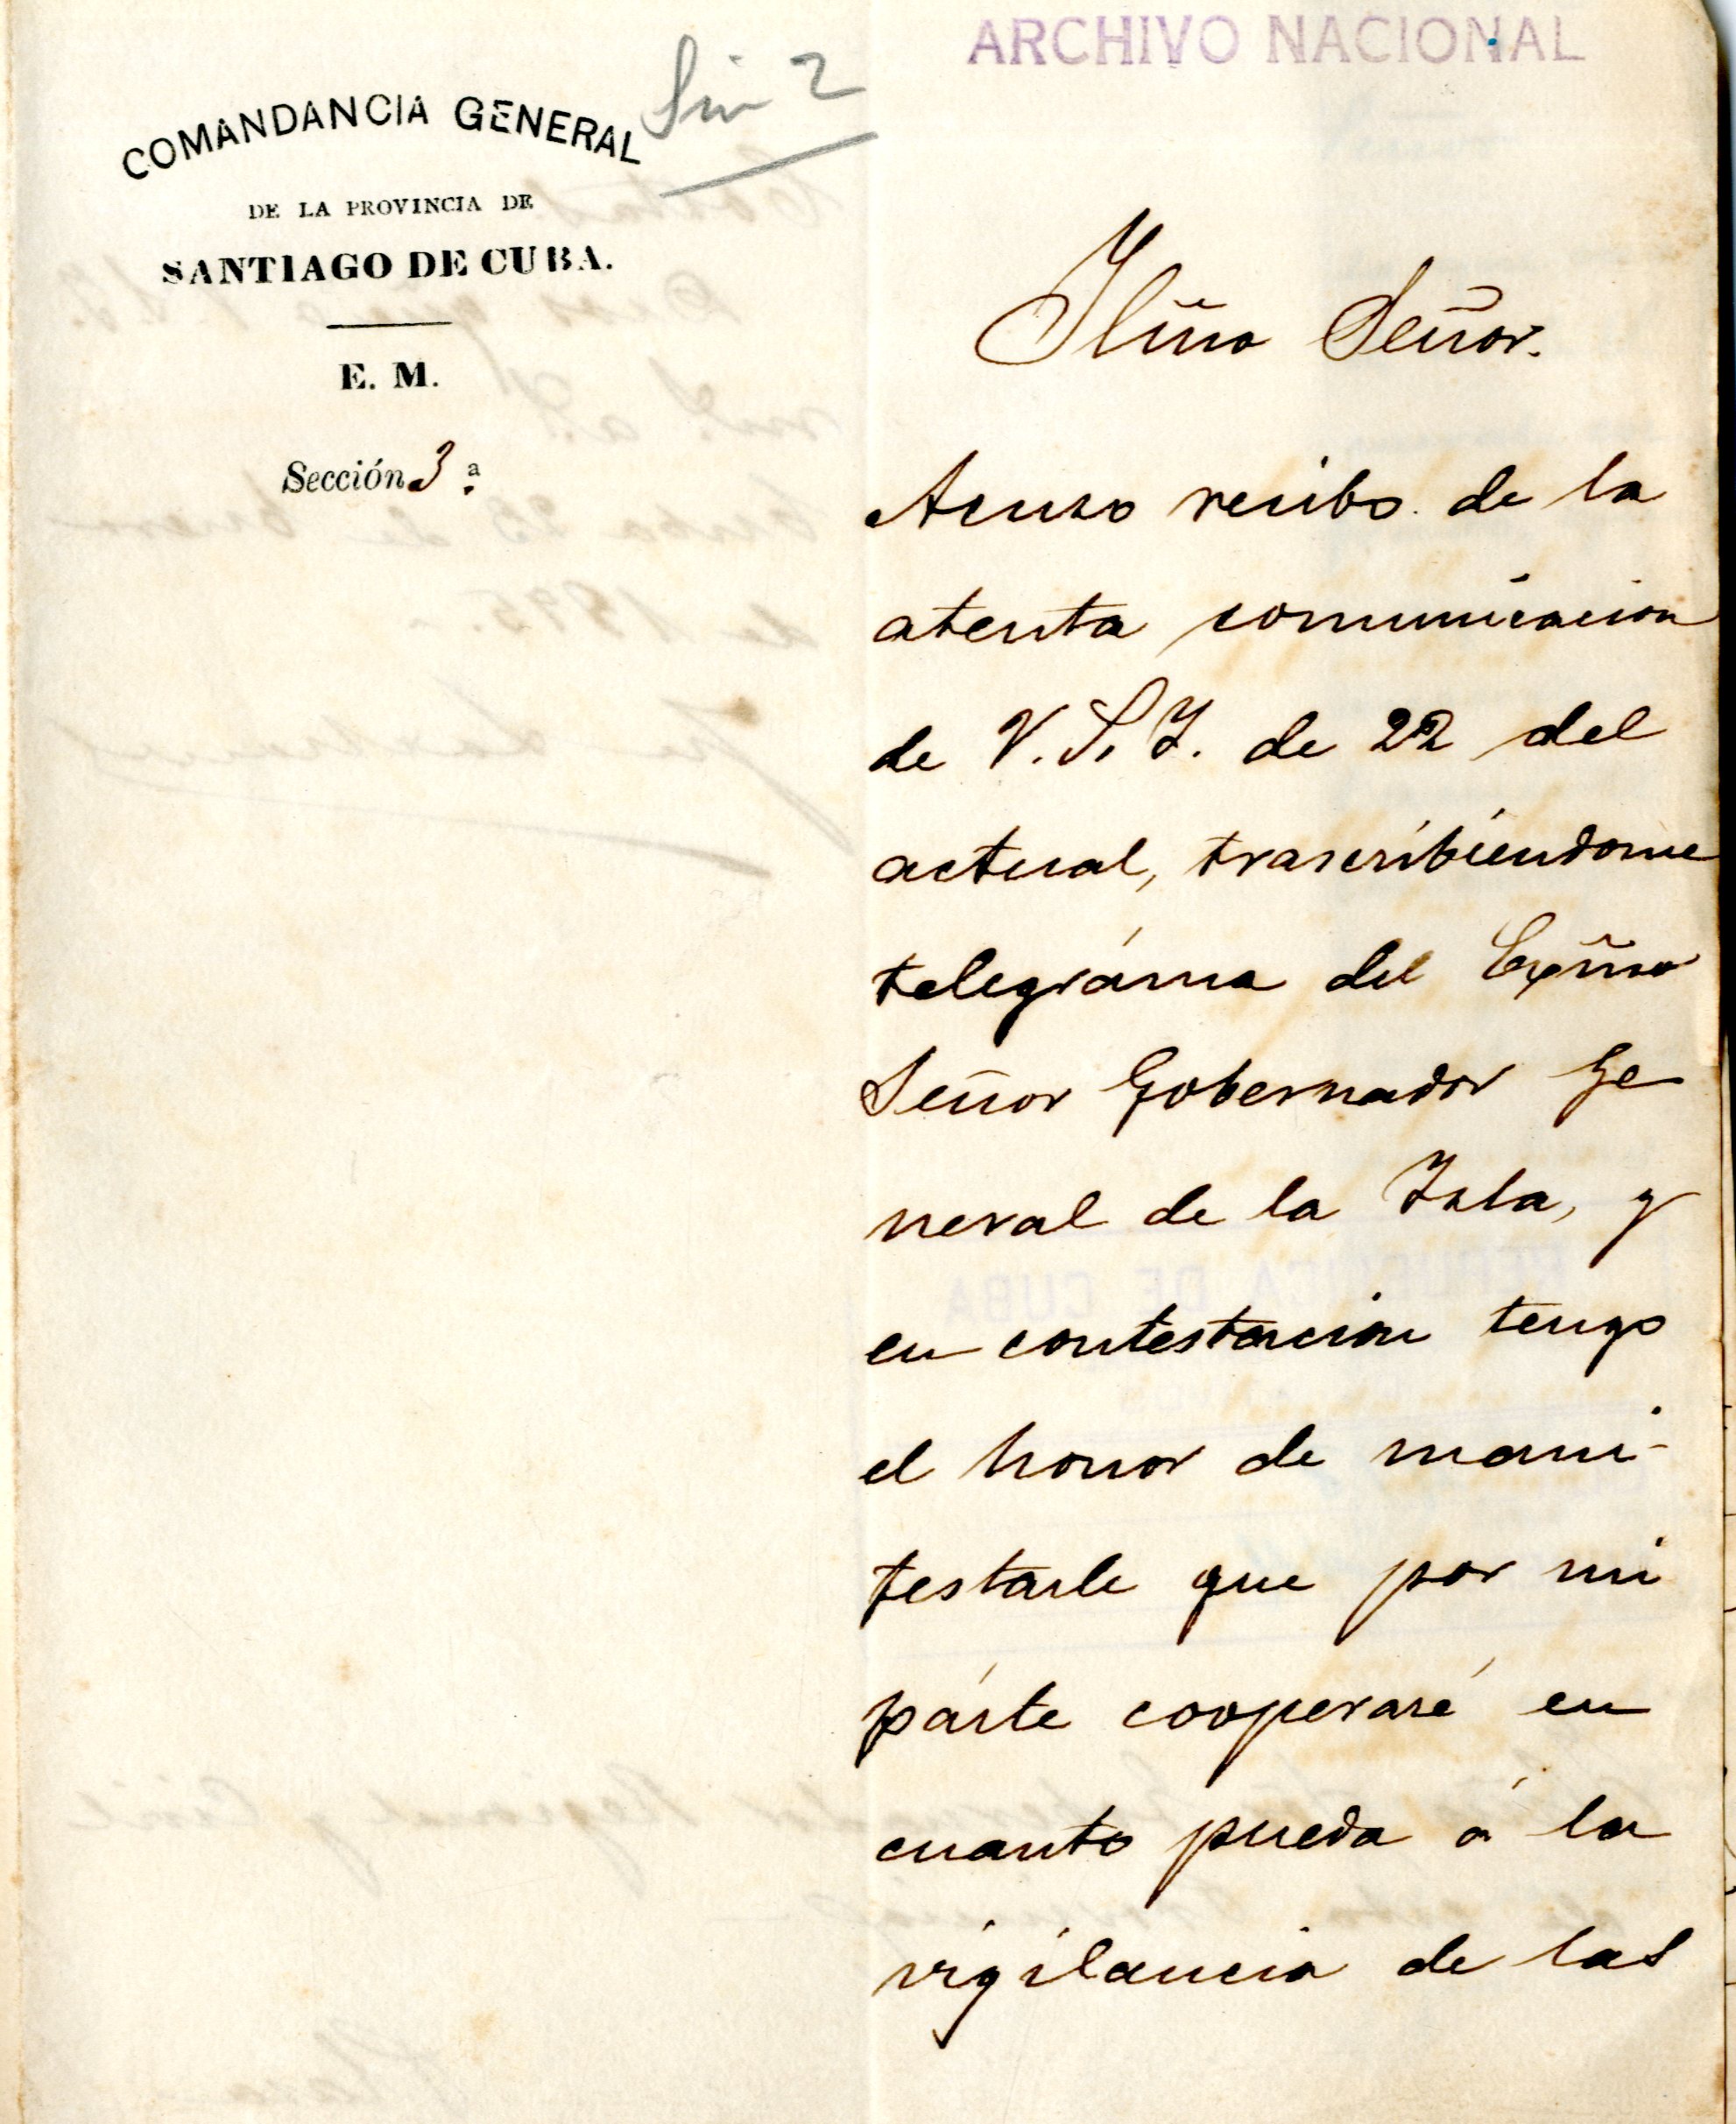 ARCHIVO NACIONAL
Sin 2
COMANDANCIA GENERAL
DE LA PROVINCIA DE
SANTIAGO DE CUBA.
E. M.
Sección 3ª.
Ilm̃o Señor.
Acuso recibo de la
atenta comunicacion
de V. S. I. de 22 del
actual, trascribiéndome
telegráma del Excm̃o
Señor Gobernador Ge
neral de la Isla, y
en contestacion tengo
el honor de mani-
festarle que por mi
párte cooperaré en
cuanto pueda á la
vigilancia de las